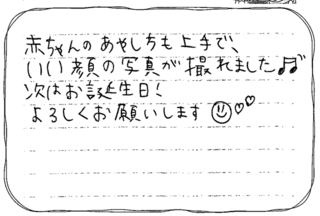 赤ちゃんのあやしちも上手で、
いい顔の写真が撮れました🎵
次はお誕生日!
よろしくお願いします☺♡♡